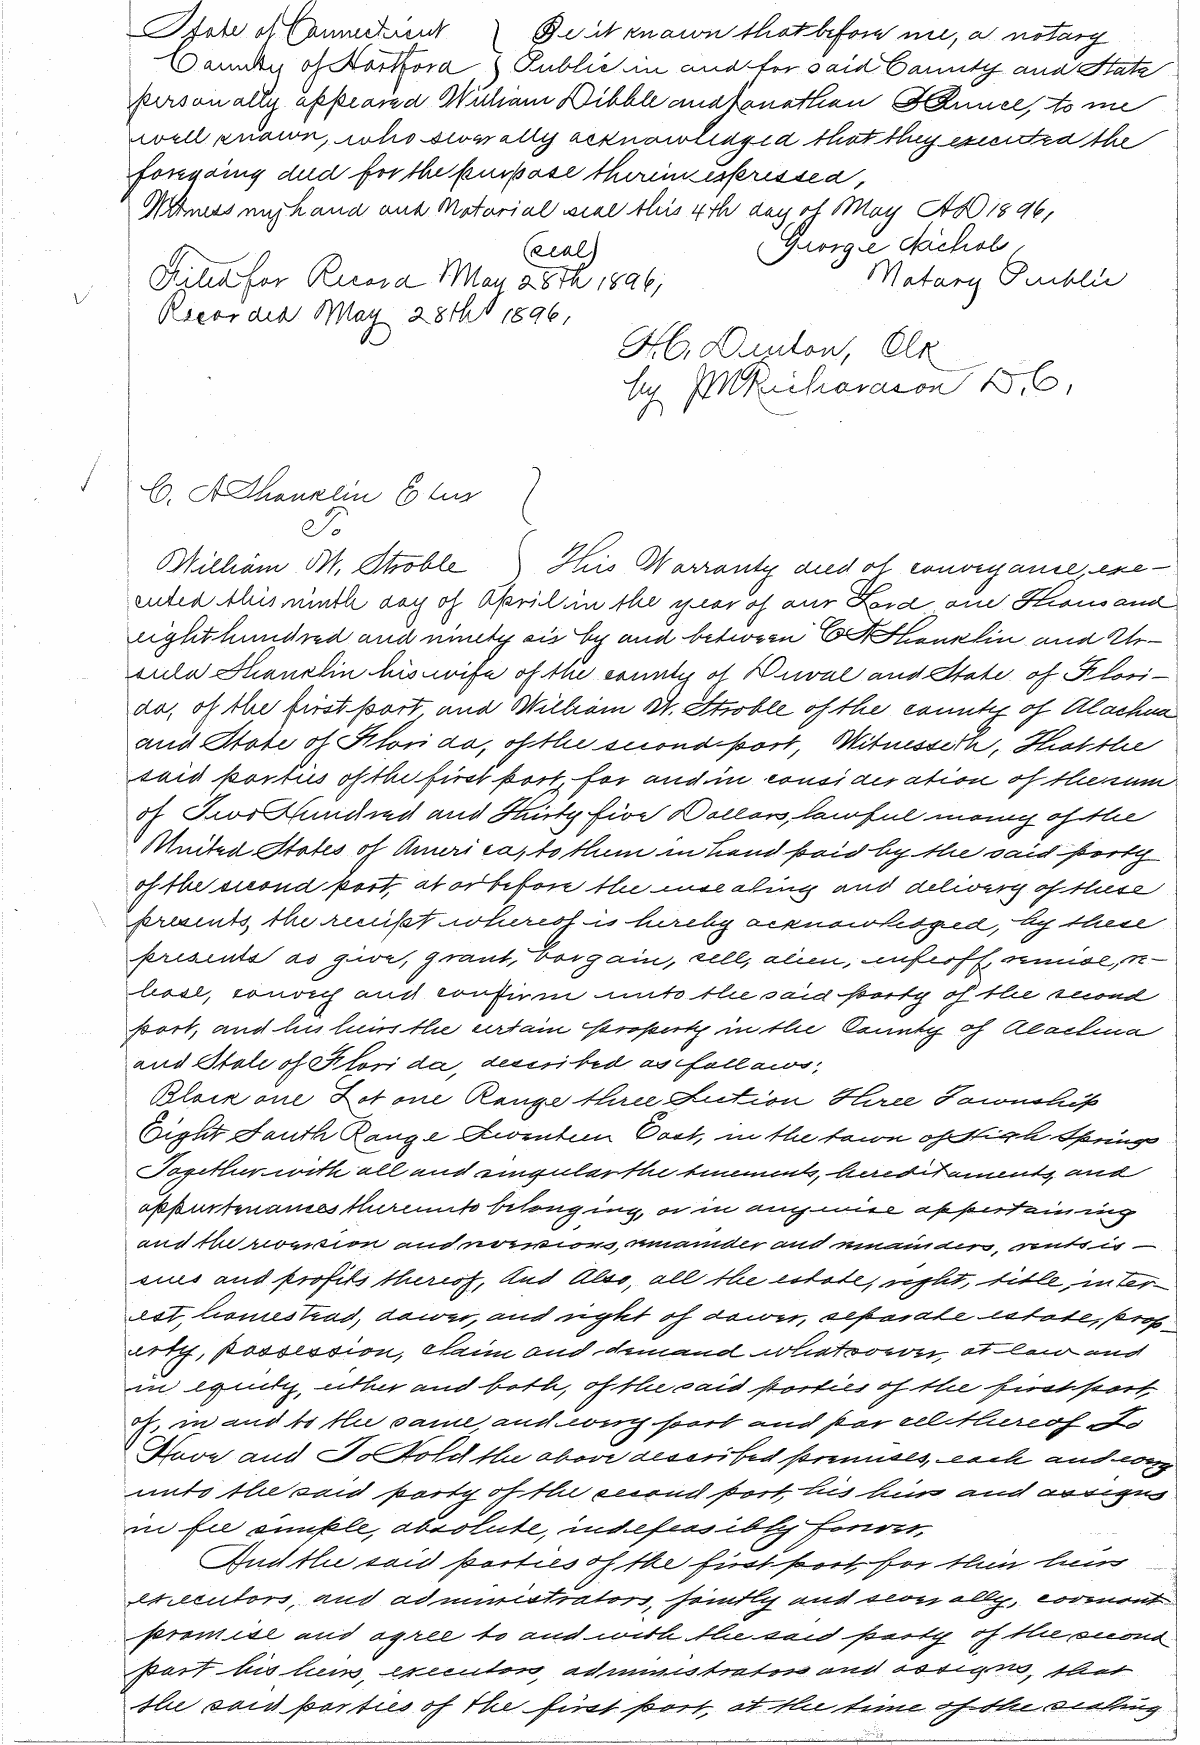 State of Connecticut } Be it known that before me, a notary
County of Hartford } Public in and for said County and State
personally appeared William Dibble and Jonathan Bunce, to me
well known, who severally acknowledged that they executed the
foregoing deed for the purpose therein expressed,
Witness my hand and Notarial seal this 4th day of May AD 1896,
(seal) George Nichols,
Filed for Record May 28th 1896, Notary Public
Recorded May 28th 1896,
H.C. Denton, Clk
by JM Richardson D.C.
C. A Shanklin Et ux }
To
William W. Stroble } This Warranty deed of conveyance, exe-
cuted this ninth day of April in the year of our Lord one Thousand
eight hundred and ninety six by and between C A Shanklin and Ur-
sula Shanklin his wife of the county of Duval and State of Flori-
da, of the first part, and William W. Stroble of the county of Alachua
and State of Florida, of the second part, Witnesseth, That the
said parties of the first part, for and in consideration of the sum
of Two Hundred and Thirty five Dollars, lawful money of the
United States of America, to them in hand paid by the said party
of the second part, at or before the ensealing and delivery of these
presents, the receipt whereof is hereby acknowledged, by these
presents do give, grant, bargain, sell, alien, enfeoff, remise, re-
lease, convey and confirm unto the said party of the second
part, and his heirs the certain property in the County of Alachua
and State of Florida, described as follows;
Block one Lot one Range three Section Three Township
Eight South Range Seventeen East, in the town of High Springs
Together with all and singular the tenements, hereditaments, and
appurtenances thereunto belonging, or in anywise appertaining
and the reversion and reversions, remainder and remainders, rents is-
sues and profits thereof, And Also, all the estate, right, title, inter-
est, homestead, dower, and right of dower, separate estate, prop-
erty, possession, claim and demand whatsoever, at law and
in equity, either and both, of the said parties of the first part,
of, in and to the same, and every part and parcel thereof To
Have and To Hold the above described premises, each and every
unto the said party of the second part, his heirs and assigns
in fee simple, absolute, indefeasibly forever.
And the said parties of the first part, for their heirs
executors, and administrators, jointly and severally, covenant
promise and agree to and with the said party of the second
part his heirs, executors, administrators and assigns, that
the said parties of the first part, at the time of the sealing